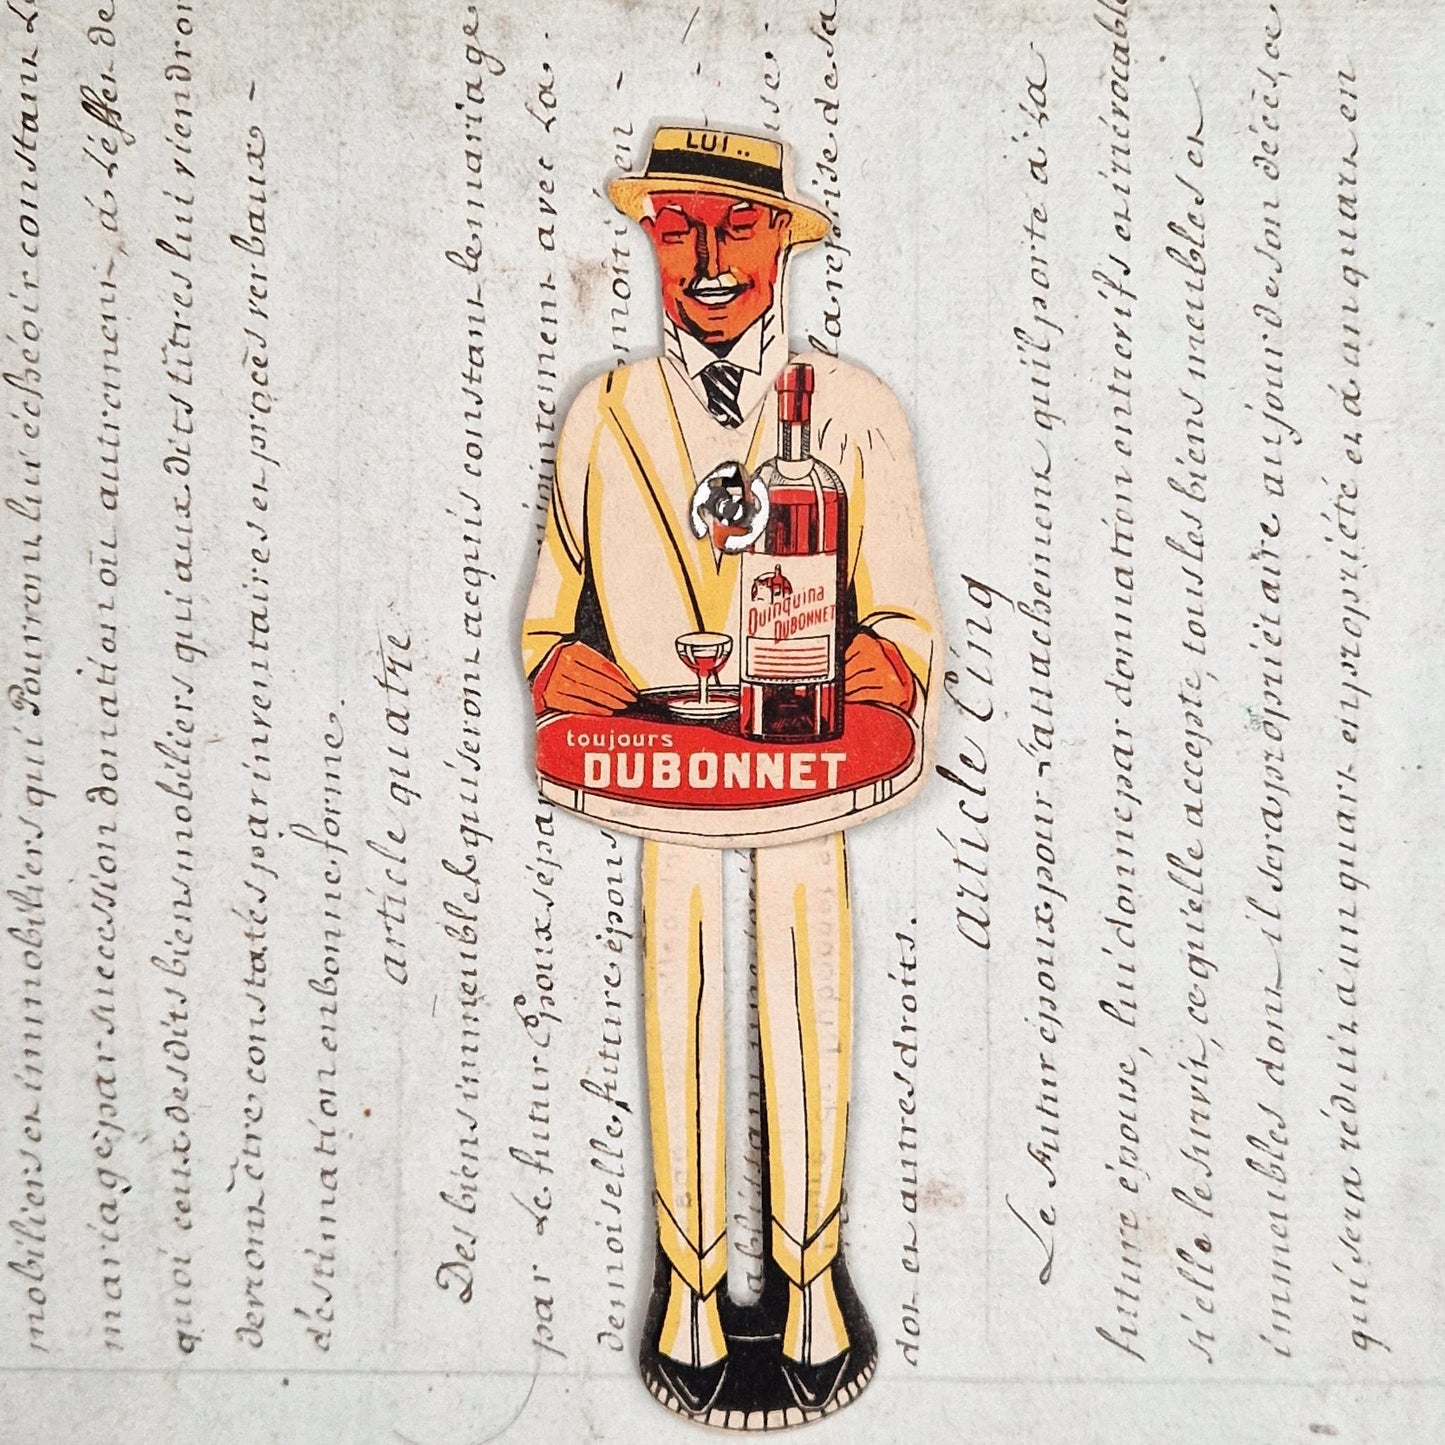 LUI..
Quinquina
DUBONNET
toujours
DUBONNET
mobiliers et immobiliers qui Pourront lui échéoir constant Le
mariage par succession donation ou autrement, à Léffet de
quoi ceux desdits biens mobiliers qui aux dits titres lui viendront
devront être constatés par inventaires et procès verbaux -
déstination en bonne forme.
article quatre
Des biens immeubles qui seront acquis constant le mariage
par Le futur Epoux séparément avec La.
demoiselle future épouse moitié en -
la reprise de sa
dot et autres droits.
article Cinq
Le futur époux pour l'attachement qu'il porte à La
future épouse, lui donne par donnation entrevifs et irrévocable
si elle le survit, ce qu'elle accepte, tous les biens meubles et
immeubles dont il sera propriétaire au jour de son décès, ce
qui sera réduit à un quart en propriété et à un quart en